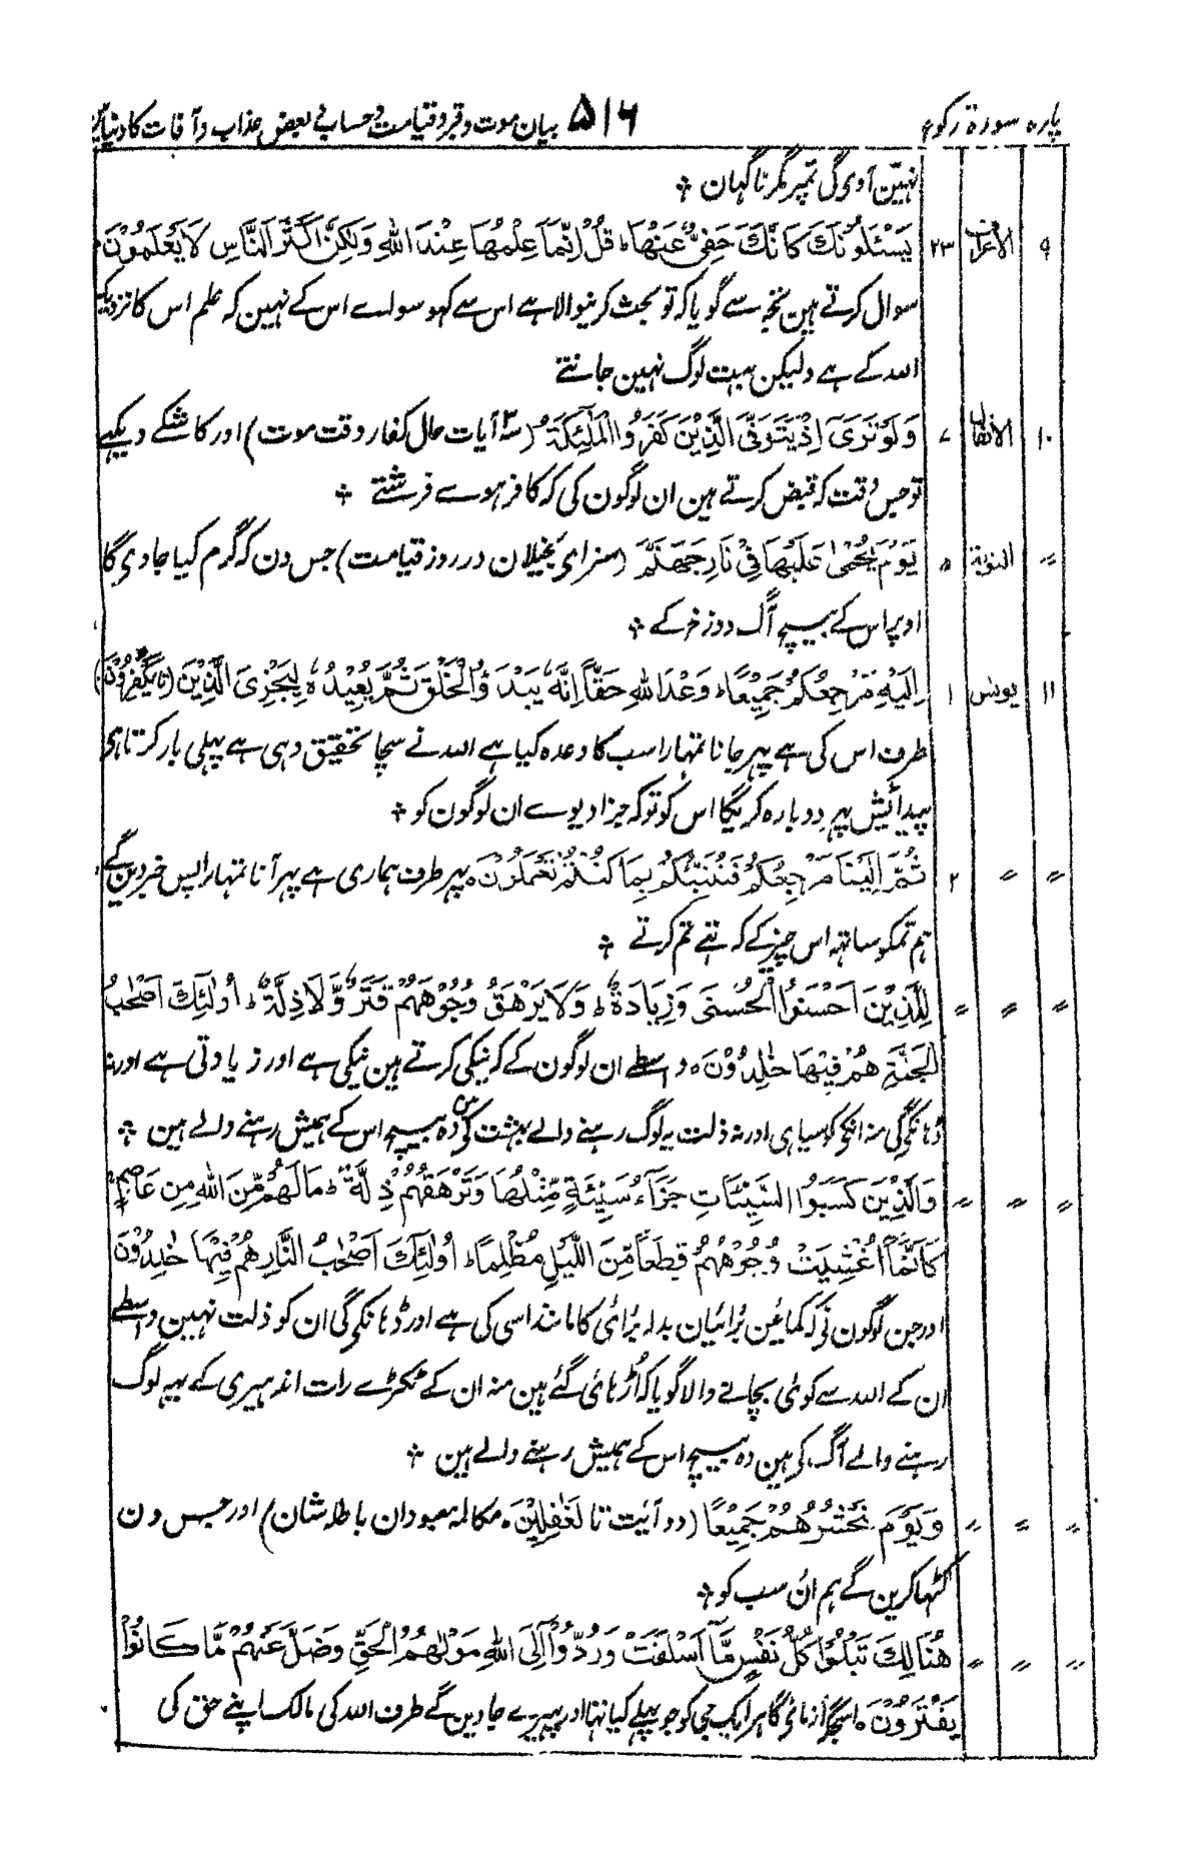 پارہ سورۃ رکوع ۵۱۶ بیان موت و قبر و قیامت و حساب و بعض عذاب و آفات کا دنیا مین
نہین آوی گی تمپر مگر ناگہان ÷
۹ الاعراف ۲۳ یَسْئَلُوْنَكَ كَاَنَّكَ حَفِیٌّ عَنْهَا ؕ قُلْ اِنَّمَا عِلْمُهَا عِنْدَ اللهِ وَلٰكِنَّ اَكْثَرَ النَّاسِ لَا یَعْلَمُوْنَ
سوال کرتے ہین تجہ سے گویا کہ تو بحث کرنیوالا ہے اس سے کہو سوالے اس کے نہین کہ علم اس کا نزدیک
اللہ کے ہے ولیکن بہت لوگ نہین جانتے
۱۰ الانفال ۷ وَلَوْ تَرٰۤی اِذْ یَتَوَفَّی الَّذِیْنَ كَفَرُوا الْمَلٰٓئِكَةُ (۳ آیات حال کفار وقت موت) اور کاشکے دیکہے
تو جس وقت کہ قبض کرتے ہین ان لوگون کی کہ کافر ہوے فرشتے ÷
〃 التوبة ۵ یَوْمَ یُحْمٰی عَلَیْهَا فِیْ نَارِ جَهَنَّمَ (سزای بخیلان در روز قیامت) جس دن کہ گرم کیا جاوی گا
اوپر اس کے بیچ آگ دوزخ کے ÷
۱۱ یونس ۱ اِلَیْهِ مَرْجِعُكُمْ جَمِیْعًا ؕ وَعْدَ اللهِ حَقًّا اِنَّهٗ یَبْدَؤُا الْخَلْقَ ثُمَّ یُعِیْدُهٗ لِیَجْزِیَ الَّذِیْنَ (تا یَكْفُرُوْنَ)
طرف اس کی ہے پہر جانا تمہارا سب کا وعدہ کیا ہے اللہ نے سچا تحقیق وہی ہے پہلی بار کرتا ہی
پیدائیش پہر دوبارہ کریگا اس کو تو کہ جزا دیوے ان لوگون کو ÷
〃 〃 ۲ ثُمَّ اِلَیْنَا مَرْجِعُكُمْ فَنُنَبِّئُكُمْ بِمَا كُنْتُمْ تَعْمَلُوْنَ ہ پہر طرف ہماری ہے پہر آنا تمہارا پس خبر دین گے
ہم تمکو ساتہہ اس چیز کے کہ تہے تم کرتے ÷
〃 〃 〃 لِلَّذِیْنَ اَحْسَنُوا الْحُسْنٰی وَزِیَادَةٌ ؕ وَلَا یَرْهَقُ وُجُوْهَهُمْ قَتَرٌ وَّلَا ذِلَّةٌ ؕ اُولٰٓئِكَ اَصْحٰبُ
الْجَنَّةِ هُمْ فِیْهَا خٰلِدُوْنَ ہ واسطے ان لوگون کے کہ نیکی کرتے ہین نیکی ہے اور زیادتی ہے اور نہ
ڈہانکیگی منہ انکے کو سیاہی اور نہ ذلت یہ لوگ رہنے والے بہشت کی ہین وہ بیچ اس کے ہمیش رہنے والے ہین ÷
〃 〃 〃 وَالَّذِیْنَ كَسَبُوا السَّیِّئٰاتِ جَزَآءُ سَیِّئَةٍ مِّثْلُهَا وَتَرْهَقُهُمْ ذِلَّةٌ ؕ مَا لَهُمْ مِّنَ اللهِ مِنْ عَاصِمٍ
كَاَنَّمَا اُغْشِیَتْ وُجُوْهُهُمْ قِطَعًا مِّنَ اللَّیْلِ مُظْلِمًا ؕ اُولٰٓئِكَ اَصْحٰبُ النَّارِ هُمْ فِیْهَا خٰلِدُوْنَ
اور جن لوگون نی کہ کمائین برائیان بدلہ برائی کا مانند اسی کی ہے اور ڈہانکے گی ان کو ذلت نہین واسطے
ان کے اللہ سے کوئی بچانے والا گویا کہ اڑہائی گئے ہین منہ ان کے ٹکڑے رات اندہیری کے یہہ لوگ
رہنے والے آگ کی ہین وہ بیچ اس کے ہمیش رہنے والے ہین ÷
〃 〃 〃 وَیَوْمَ نَحْشُرُهُمْ جَمِیْعًا (دو آیت تا لَغٰفِلِیْنَ ہ مکالمہ معبودان باطلہ شان) اور جس دن
اکٹہا کرین گے ہم ان سب کو ÷
〃 〃 〃 هُنَالِكَ تَبْلُوْا كُلُّ نَفْسٍ مَّا اَسْلَفَتْ وَرُدُّوْا اِلَی اللهِ مَوْلٰهُمُ الْحَقِّ وَضَلَّ عَنْهُمْ مَّا كَانُوْا
یَفْتَرُوْنَ ہ اسجگہ ازمائی گا ہر ایک جی کو جو پہلے کیا تہا اور پہیرے جاوین گے طرف اللہ کی مالک اپنے حق کی